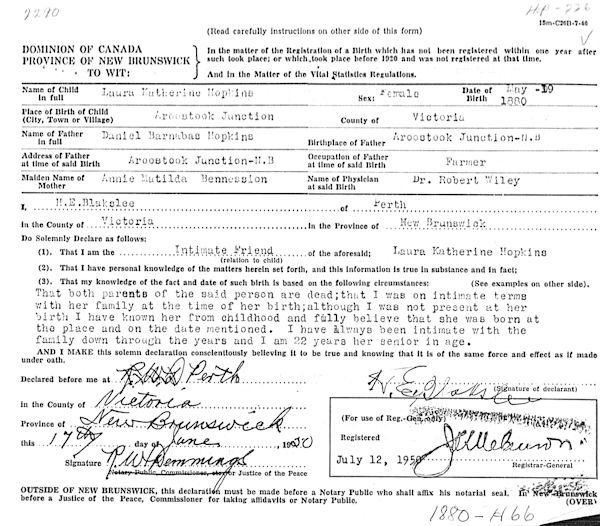 2290
HP-226
(Read carefully instructions on other side of this form)
15m-C26D-7-48
DOMINION OF CANADA
PROVINCE OF NEW BRUNSWICK
TO WIT:
In the matter of the Registration of a Birth which has not been registered within one year after
such took place; or which took place before 1920 and was not registered at that time.
And in the Matter of the Vital Statistics Regulations.
Name of Child in full Laura Katherine Hopkins Sex: Female Date of Birth May 19 1880
Place of Birth of Child (City, Town or Village) Aroostook Junction County of Victoria
Name of Father in full Daniel Barnabas Hopkins Birthplace of Father Aroostook Junction-N.B
Address of Father at time of said Birth Aroostook Junction-N.B Occupation of Father at time of said Birth Farmer
Maiden Name of Mother Annie Matilda Bennession Name of Physician at said Birth Dr. Robert Wiley
I, H.E.Blakslee of Perth
in the County of Victoria in the Province of New Brunswick
Do Solemnly Declare as follows:
(1). That I am the Intimate Friend of the aforesaid; Laura Katherine Hopkins
(relation to child)
(2). That I have personal knowledge of the matters herein set forth, and this information is true in substance and in fact;
(3). That my knowledge of the fact and date of such birth is based on the following circumstances: (See examples on other side).
That both parents of the said person are dead;that I was on intimate terms
with her family at the time of her birth;although I was not present at her
birth I have known her from childhood and fully believe that she was born at
the place and on the date mentioned. I have always been intimate with the
family down through the years and I am 22 years her senior in age.
AND I MAKE this solemn declaration conscientiously believing it to be true and knowing that it is of the same force and effect as if made
under oath.
Declared before me at Perth
in the County of Victoria
Province of New Brunswick
this 17th day of June 1950
Signature
Notary Public, Commissioner, or Justice of the Peace
H.E. Blakslee
(Signature of declarant)
(For use of Reg.-Gen. only)
Registered
July 12, 1950
Registrar-General
OUTSIDE OF NEW BRUNSWICK, this declaration must be made before a Notary Public who shall affix his notarial seal. In New Brunswick
before a Justice of the Peace, Commissioner for taking affidavits or Notary Public. (OVER)
1880-H66